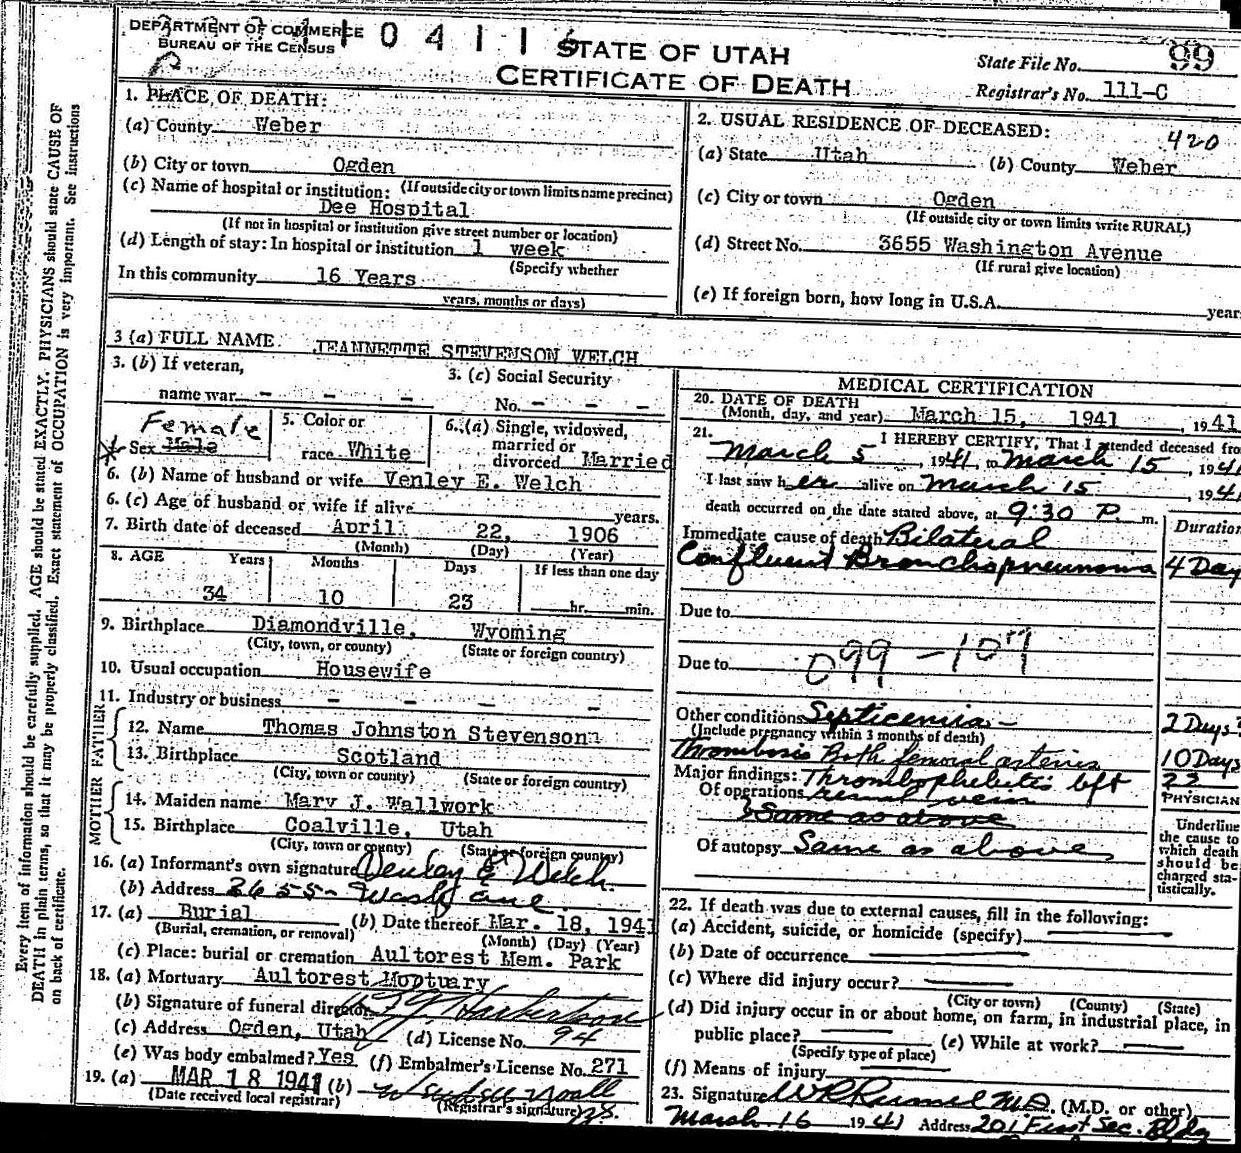 DEPARTMENT OF COMMERCE
BUREAU OF THE CENSUS
1 1 0 4 1 1 6
STATE OF UTAH
CERTIFICATE OF DEATH
State File No. 99
Registrar's No. 111-C
1. PLACE OF DEATH:
(a) County Weber
(b) City or town Ogden
(c) Name of hospital or institution: (If outside city or town limits name precinct)
Dee Hospital
(If not in hospital or institution give street number or location)
(d) Length of stay: In hospital or institution 1 week
(Specify whether
In this community 16 Years
years, months or days)
2. USUAL RESIDENCE OF DECEASED:
420
(a) State Utah (b) County Weber
(c) City or town Ogden
(If outside city or town limits write RURAL)
(d) Street No. 3655 Washington Avenue
(If rural give location)
(e) If foreign born, how long in U.S.A. year
3 (a) FULL NAME JEANNETTE STEVENSON WELCH
3. (b) If veteran,
name war - - - -
3. (c) Social Security
No. - - -
Female
4. Sex Male
5. Color or
race White
6. (a) Single, widowed,
married or
divorced Married
6. (b) Name of husband or wife Venley E. Welch
6. (c) Age of husband or wife if alive years.
7. Birth date of deceased April 22, 1906
(Month) (Day) (Year)
8. AGE Years Months Days If less than one day
34 10 23 hr. min.
9. Birthplace Diamondville, Wyoming
(City, town, or county) (State or foreign country)
10. Usual occupation Housewife
11. Industry or business - - - -
FATHER
12. Name Thomas Johnston Stevenson
13. Birthplace Scotland
(City, town or county) (State or foreign country)
MOTHER
14. Maiden name Mary J. Wallwork
15. Birthplace Coalville, Utah
(City, town or county) (State or foreign country)
16. (a) Informant's own signature Venley E Welch.
(b) Address 3655 - Wash ave.
17. (a) Burial (b) Date thereof Mar. 18, 1941
(Burial, cremation, or removal) (Month) (Day) (Year)
(c) Place: burial or cremation Aultorest Mem. Park
18. (a) Mortuary Aultorest Mortuary
(b) Signature of funeral director
(c) Address Ogden, Utah (d) License No. 94
(e) Was body embalmed? Yes (f) Embalmer's License No. 271
19. (a) MAR 18 1941 (b)
(Date received local registrar) (Registrar's signature)
MEDICAL CERTIFICATION
20. DATE OF DEATH
(Month, day, and year) March 15, 1941, 1941
21. I HEREBY CERTIFY, That I attended deceased from
March 5, 1941, to March 15, 1941
I last saw her alive on March 15, 1941
death occurred on the date stated above, at 9:30 P. m.
Duration
Immediate cause of death Bilateral
Confluent Bronchopneumonia 4 Day
Due to
Due to 099 - 107
Other conditions Septicemia - 2 Days?
(Include pregnancy within 3 months of death)
Thrombosis Both femoral arteries 10 Days
Major findings: Thrombophebitis left
Of operations renal vein
Same as above
Of autopsy Same as above
PHYSICIAN
Underline
the cause to
which death
should be
charged sta-
tistically.
22. If death was due to external causes, fill in the following:
(a) Accident, suicide, or homicide (specify)
(b) Date of occurrence
(c) Where did injury occur?
(City or town) (County) (State)
(d) Did injury occur in or about home, on farm, in industrial place, in
public place? (e) While at work?
(Specify type of place)
(f) Means of injury
23. Signature M.D. (M.D. or other)
March 16 1941 Address 201 First Sec. Bldg
Every item of information should be carefully supplied. AGE should be stated EXACTLY. PHYSICIANS should state CAUSE OF
DEATH in plain terms, so that it may be properly classified. Exact statement of OCCUPATION is very important. See instructions
on back of certificate.